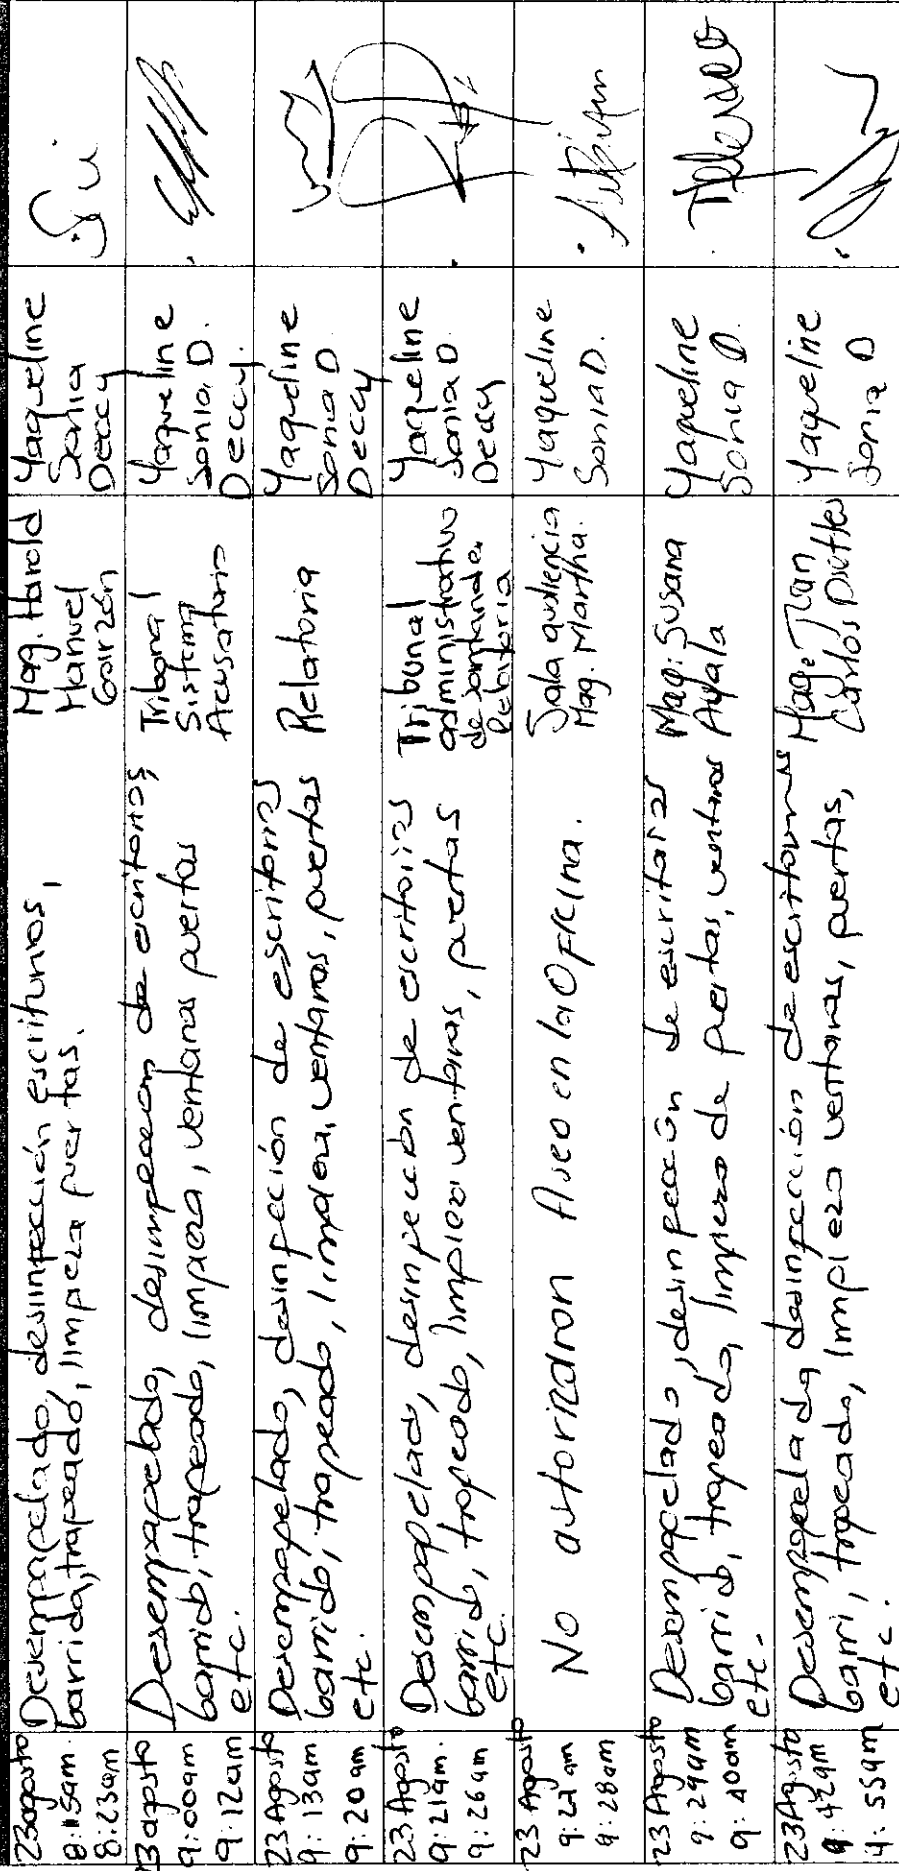 23 agosto
8:15am
8:23am
Desempapelado, desinfección escritorios,
barrido, trapeado, limpieza puertas.
Mag. Harold
Manuel
Garzón
Yaqueline
Sonia
Deccy
23 agosto
9:00am
9:12am
Desempapelado, desinfeccion de escritorios,
barrido, trapeado, limpieza, ventanas puertas
etc.
Tribunal
Sistema
Acusatorio
Yaqueline
Sonia D.
Deccy.
23 Agosto
9:13am
9:20am
Desempapelado, desinfeción de escritorios
barrido, trapeado, limpieza, ventanas, puertas
etc.
Relatoria
Yaqueline
Sonia D
Deccy
23 Agosto
9:21am.
9:26am
Desempapelado, desinfección de escritorios
barrido, trapeado, limpieza ventanas, puertas
etc.
Tribunal
administrativo
de santander
Yaqueline
Sonia D.
Deccy
23 Agosto
9:27am
9:28am
No autorizaron Aseo en la Oficina.
Sala audiencia
Mag. Martha.
Yaqueline
Sonia D.
23 Agosto
9:29am
9:40am
Desempapelado, desinfección de escritorios
barrido, trapeado, limpieza de puertas, ventanas
etc.
Mag. Susana
Ayala
Yaqueline
Sonia D.
23 Agosto
9:42am
9:55am
Desempapelado desinfección de escritorios
barri, trapeado, limpieza ventanas, puertas,
etc.
Mag. Juan
Carlos
Yaqueline
Sonia D